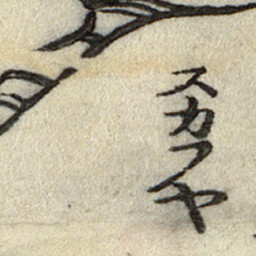 スカフヤ